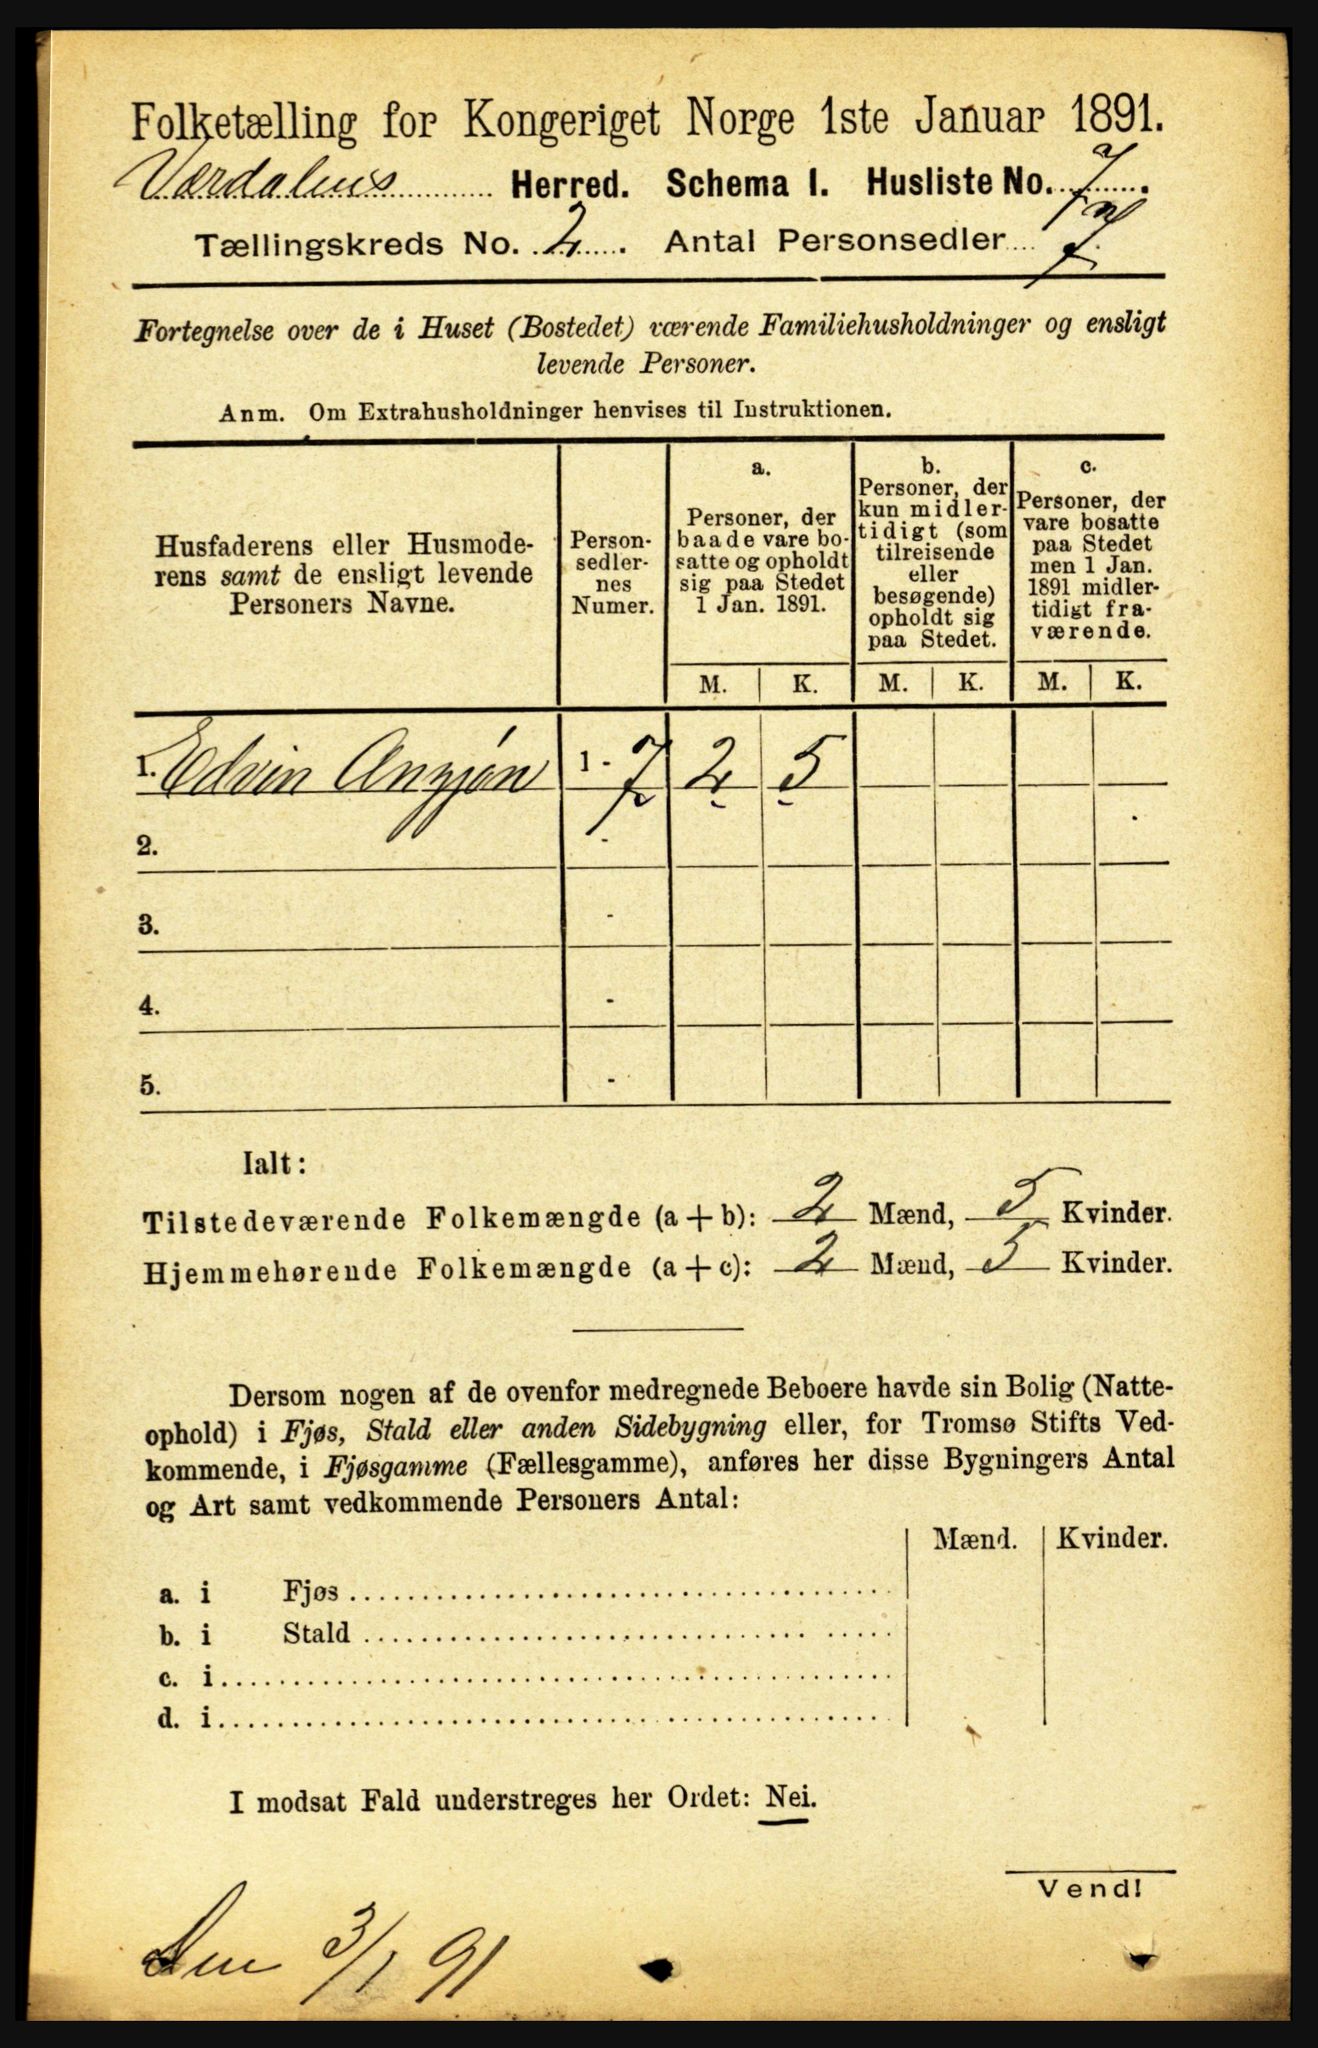 Folketælling for Kongeriget Norge 1ste Januar 1891.
Værdalens Herred. Schema I. Husliste No. 7.
Tællingskreds No. 2. Antal Personsedler 7.
Fortegnelse over de i Huset (Bostedet) værende Familiehusholdninger og ensligt
levende Personer.
Anm. Om Extrahusholdninger henvises til Instruktionen.
Husfaderens eller Husmode-
rens samt de ensligt levende
Personers Navne.
Person-
sedler-
nes
Numer.
a.
Personer, der
baade vare bo-
satte og opholdt
sig paa Stedet
1 Jan. 1891.
b.
Personer, der
kun midler-
tidigt (som
tilreisende
eller
besøgende)
opholdt sig
paa Stedet.
c.
Personer, der
vare bosatte
paa Stedet
men 1 Jan.
1891 midler-
tidigt fra-
værende.
M. K. M. K. M. K.
1. Edvin 1 - 7 2 5
2. -
3. -
4. -
5. -
Ialt:
Tilstedeværende Folkemængde (a + b): 2 Mænd, 5 Kvinder.
Hjemmehørende Folkemængde (a + c): 2 Mænd, 5 Kvinder.
Dersom nogen af de ovenfor medregnede Beboere havde sin Bolig (Natte-
ophold) i Fjøs, Stald eller anden Sidebygning eller, for Tromsø Stifts Ved-
kommende, i Fjøsgamme (Fællesgamme), anføres her disse Bygningers Antal
og Art samt vedkommende Personers Antal:
Mænd. Kvinder.
a. i Fjøs
b. i Stald
c. i
d. i
I modsat Fald understreges her Ordet: Nei.
Vend!
Den 3/1 91